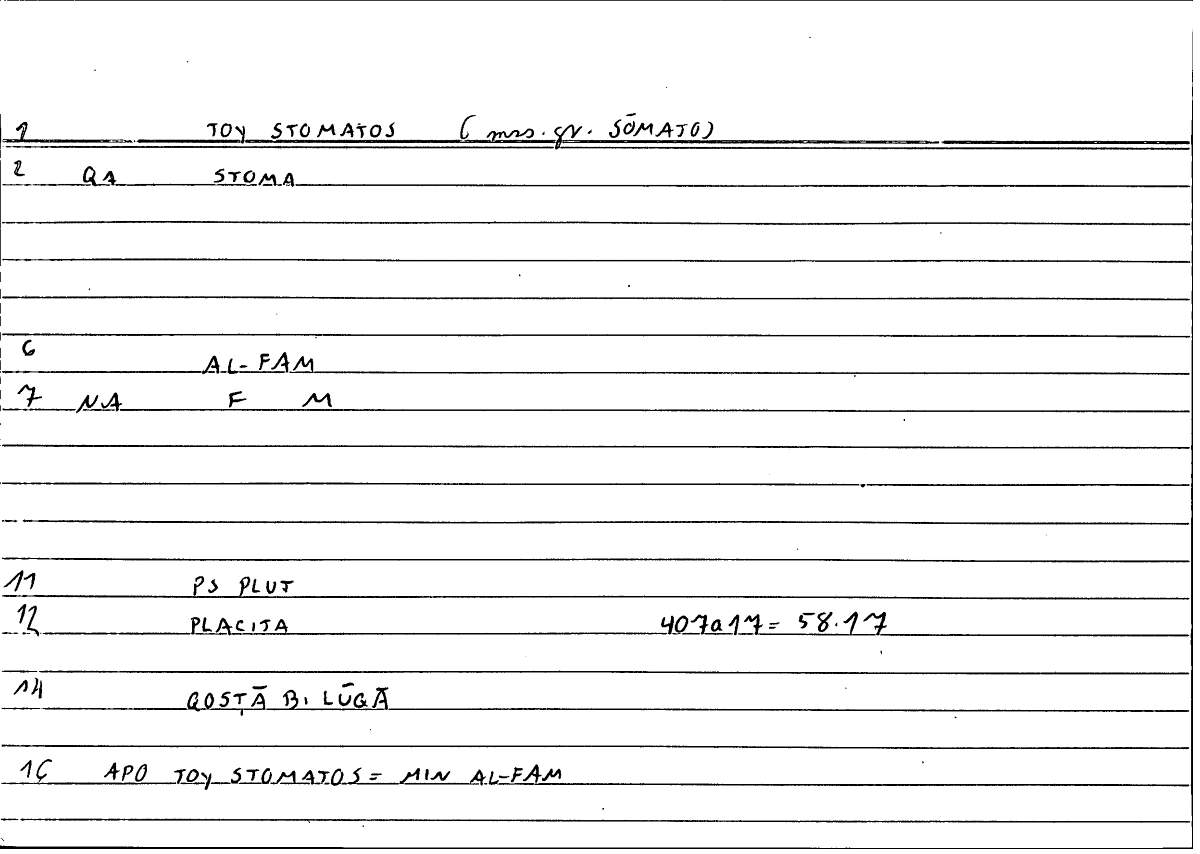 1 TOY STOMATOS ( mss. gr. SŌMATO)
2 QA STOMA
6 AL-FAM
7 NA F M
11 PS PLUT
12 PLACITA 407a17= 58.17
14 QOSṬĀ B. LŪQĀ
16 APO TOY STOMATOS = MIN AL-FAM